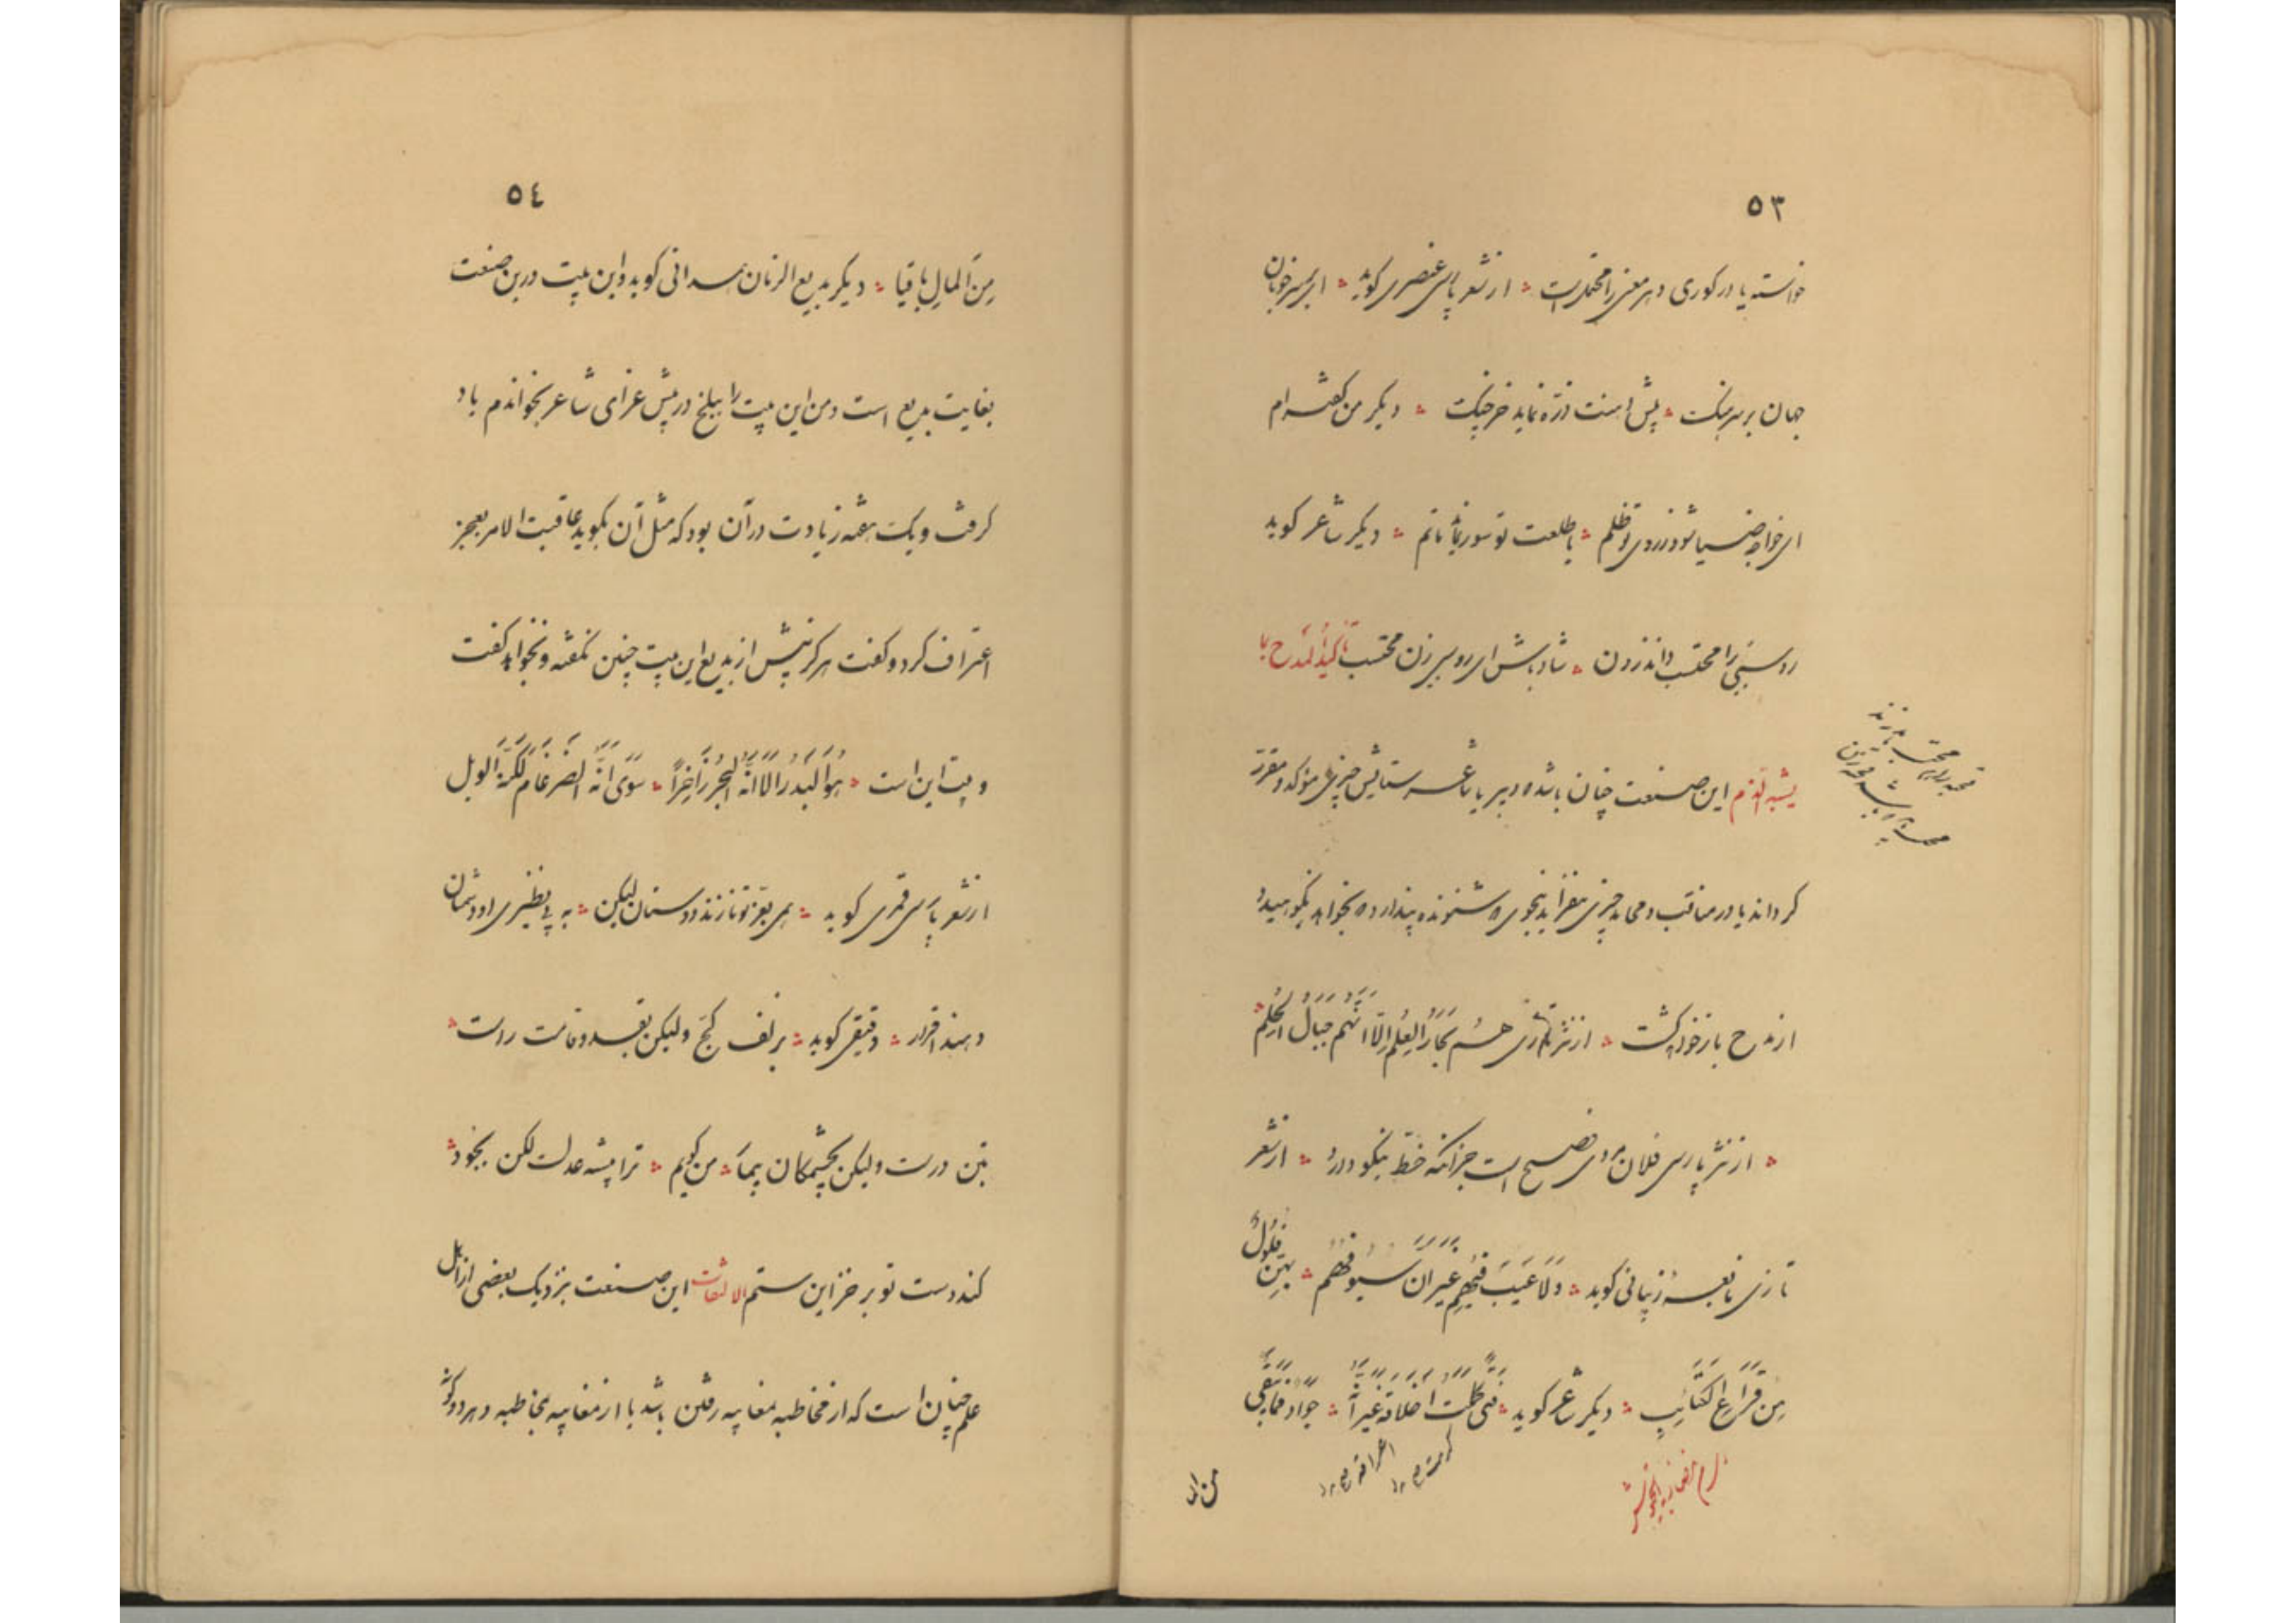 ٥٣
خواسته یا در کوری و هر معنی را محتملست ❊ از شعر پارسی عنصری کوید ❊ ای بر سر خوبان
جهان بر سرهنک ❊ پیش دهنت ذره نماید خرچنک ❊ دیکر من کفته‌ام
ای خواجه ضیا شود ز روی تو ظلم ❊ با طلعت تو سور نماید ماتم ❊ دیکر شاعر کوید
روسپی را محتسب داند زدن ❊ شاد باش ای روسپی زن محتسب تاکید المدح بما
یشبه الذم این صنعت چنان باشد که دبیر یا شاعر ستایش چیزی مؤکد و مقرر
کرداند یا در مناقب و محامد چیزی بیفزاید بنحوی که شنونده پندارد که بخواهد نکوهید و
از مدح باز خواهد کشت ❊ از نثر تازی هُم بِحارُ العِلم اِلّا انّهم جبالُ الحِلم ❊
❊ از نثر پارسی فلان مردی فصیح است جز آنکه خط نیکو دارد ❊ از شعر
تازی نابغهٔ ذبیانی کوید ❊ وَلَا عَیبَ فیهِم غَیرَ اَنَّ سُیوفَهُم ❊ بِهِنَّ فُلُولٌ
مِن قِرَاعِ الکَتَائِبِ ❊ دیکر شاعر کوید ❊ فَتًی کَمُلَت اَخلاقُهُ غَیرَ اَنَّهُ ❊ جَوَادٌ فَمَا یُبقِی
من ال
٥٤
مِنَ المالِ باقیا ❊ دیکر بدیع الزمان همدانی کوید و این بیت درین صنعت
بغایت بدیع است و من این بیت را ببلخ در پیش غزای شاعر بخواندم یاد
کرفت و یک هفته زیادت در آن بود که مثل آن بکوید عاقبت الامر بعجز
اعتراف کرد و کفت هرکز پیش از بدیع این بیت چنین نکفته و نخواهد کفت
و بیت این است ❊ هُوَ البَدرُ اِلّا اَنَّهُ البَحرُ زَاخِراً ❊ سِوَی اَنَّهُ الضِرغَامُ لکِنَّهُ الوَبلُ
از شعر پارسی قمری کوید ❊ همی بعز تو نازند دوستان لیکن ❊ به بی نظیری او دشمنان
دهند اقرار ❊ دقیقی کوید ❊ بزلف کج و لیکن بقد و قامت راست ❊
بتن درست ولیکن بچشمکان بیمار ❊ من کویم ❊ ترا پیشه عدلست لکن بجود ❊
کند دست تو بر خزاین ستم الالتفات این صنعت بنزدیک بعضی از اهل
علم چنان است که از مخاطبه بمغایبه رفتن باشد یا از مغایبه بمخاطبه و هر دو کونه